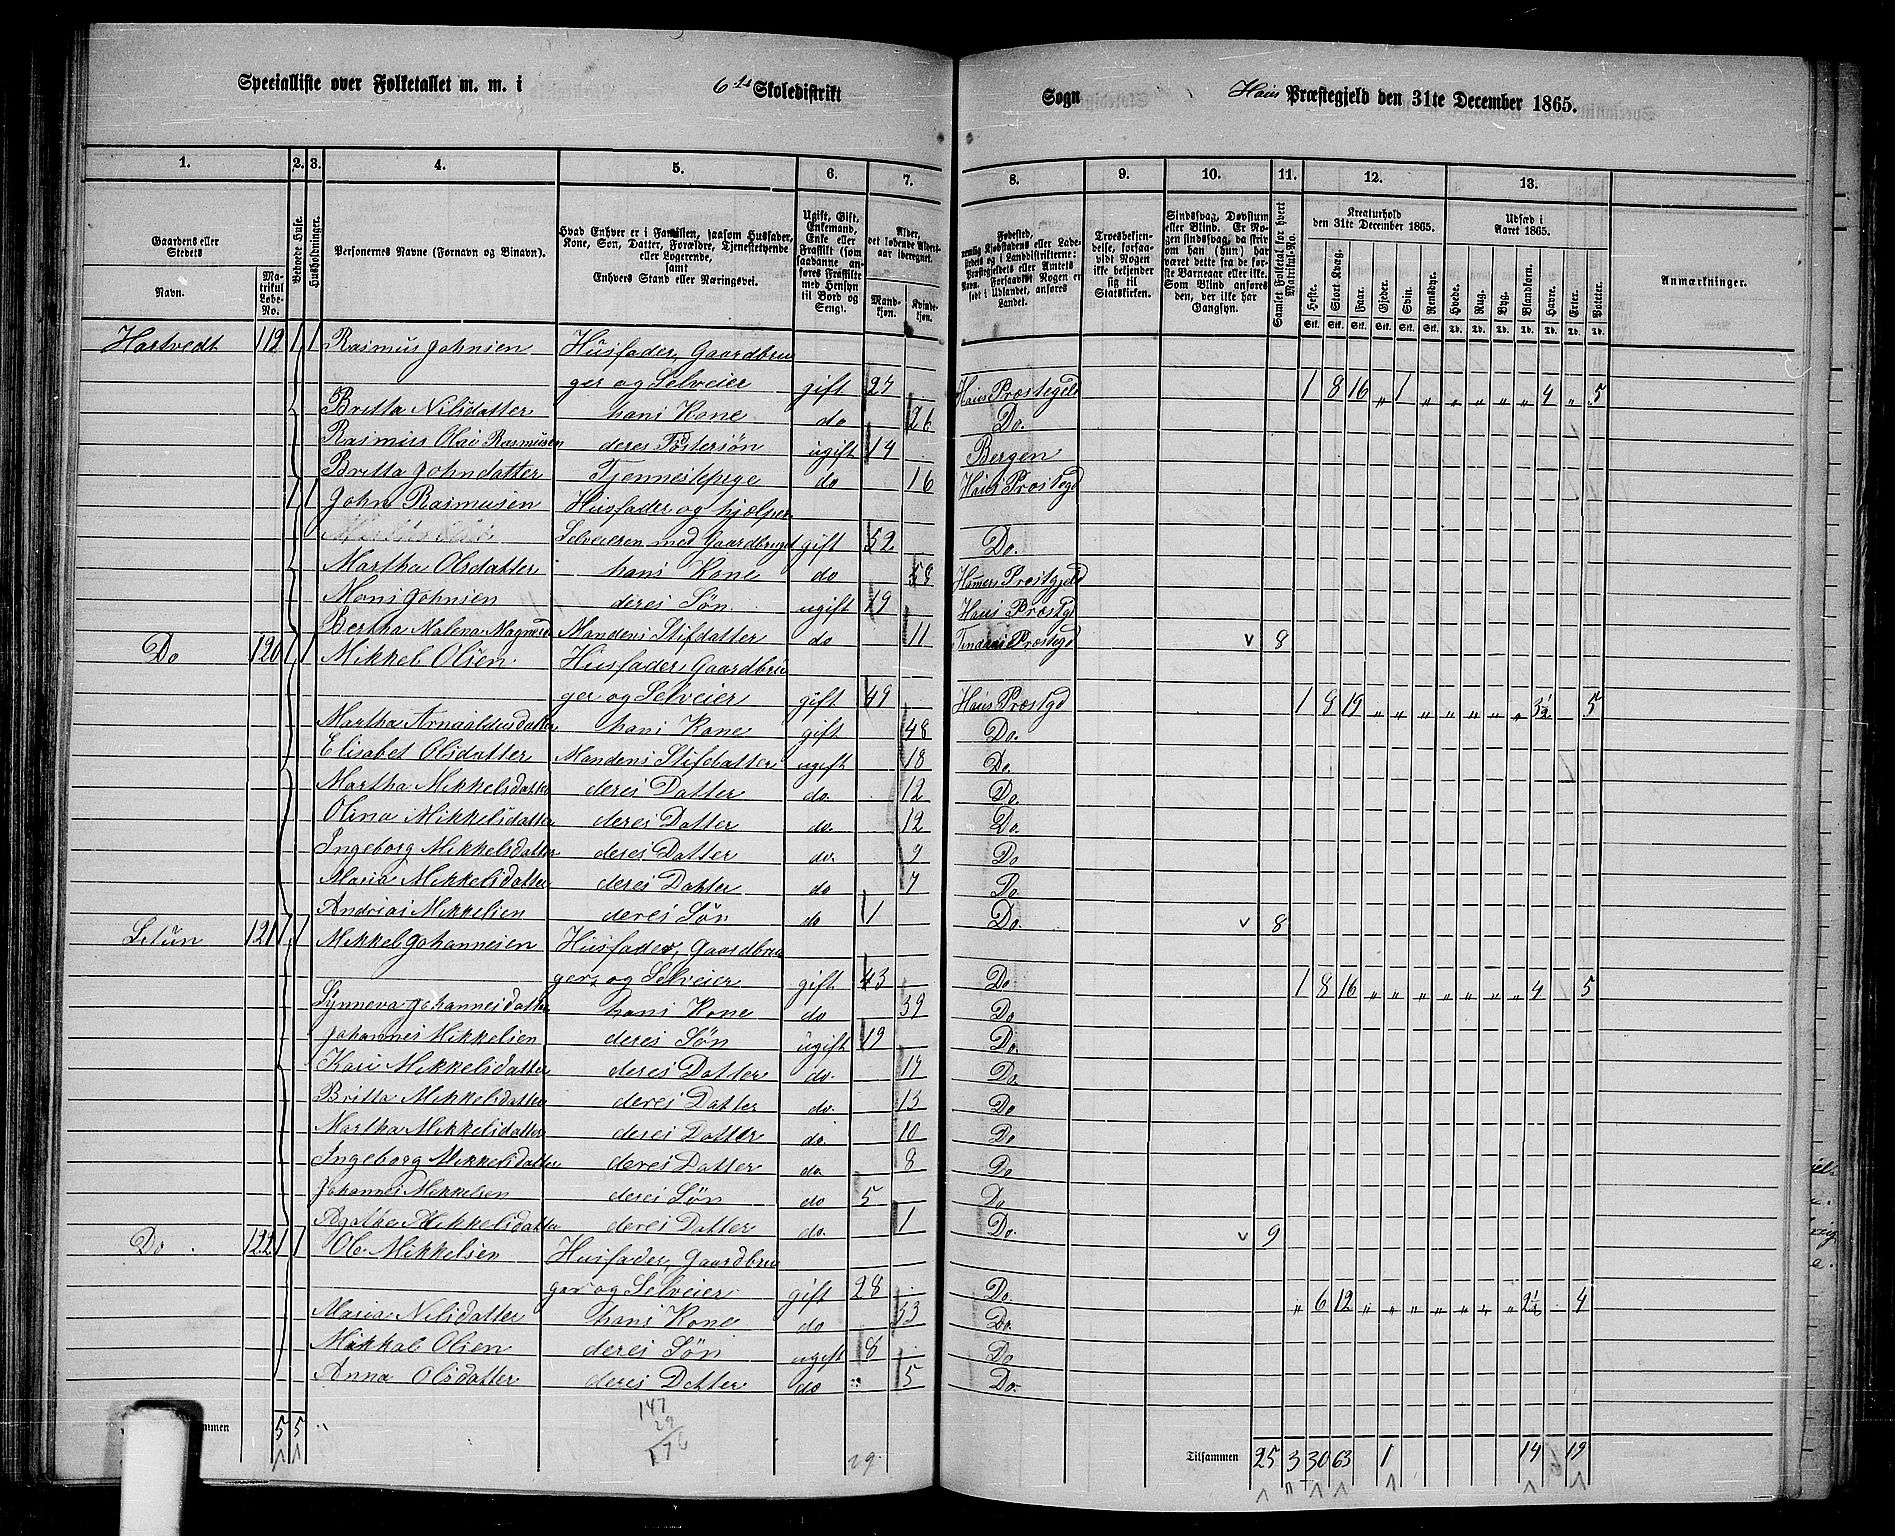 Specialliste over Folketallet m. m. i 6te Skoledistrikt Sogn Haus Præstegjeld den 31te December 1865.
1. 2. 3. 4. 5. 6. 7. 8. 9. 10. 11. 12. 13.
Gaardens eller Stedets
Navn. Matrikul Løbe-No.
Beboede Huse.
Husholdninger.
Personernes Navne (Fornavn og Binavn).
Hvad Enhver er i Familien, saasom Husfader, Kone, Søn, Datter, Forældre, Tjenestetyende eller Logerende, samt Enhvers Stand eller Næringsvei.
Ugift, Gift, Enkemand, Enke eller Fraskilt (som saadanne anføres Fraskilte med Hensyn til Bord og Seng).
Alder, det løbende Alders-aar iberegnet.
Mandkjøn. Kvindekjøn.
Fødested,
Troesbekjendelse, forsaavidt Nogen ikke bekjender sig til Statskirken.
Sindssvag, Døvstum eller Blind. Er Nogen sindssvag, da skrives om han (hun) har været dette fra de første Barneaar eller ikke. Som Blind anføres den, der ikke har Gangsyn.
Samlet Folketal for hvert Matrikul-No.
Kreaturhold den 31te December 1865.
Heste. Stort Kvæg. Faar. Gjeder. Svin. Rensdyr.
Udsæd i Aaret 1865.
Hvede. Rug. Byg. Blandkorn. Havre. Erter. Poteter.
Anmærkninger.
Hartvedt 119 1 1 Rasmus Johnsen Husfader, Gaardbru
ger og Selveier gift 27 Haus Præstegjeld 1 8 16 „ 1 „ „ „ „ „ 4 „ 5
Britta Nilsdatter hans Kone do 26 Do.
Rasmus Olai Rasmusen deres Fostersøn ugift 14 Bergen
Britta Johndatter Tjennestepige do 16 Haus Præstegd
1 1 John Rasmusen Husfader og hjelper
Selveieren med Gaardbruget gift 52 Do.
Martha Olsdatter hans Kone do 58 Hamers Prestgjeld
Mons Johnsen deres Søn ugift 19 Haus Præstgd
Bertha Malena Magnusd Mandens Stifdatter do 11 Præstegd v 8
Do 120 1 1 Mikkel Olsen Husfader, Gaardbru
ger og Selveier gift 49 Haus Præstgd 1 8 19 „ „ „ „ „ „ „ 3½ 5
Martha Arnoldusdatter hans Kone gift 48 Do.
Elisabet Olsdatter Mandens Stifdatter ugift 18 Do.
Martha Mikkelsdatter deres Datter do. 12 Do.
Olina Mikkelsdatter deres Datter do. 12 Do.
Ingeborg Mikkelsdatter deres Datter do. 9 Do
Maria Mikkelsdatter deres Datter do 7 Do.
Andrias Mikkelsen deres Søn do 1 Do. v 8
121 1 1 Mikkel Johannesen Husfader, Gaardbru
ger og Selveier gift 43 Do. 1 8 16 „ „ „ „ „ „ „ 4 5
Synneva Johannesdatter hans Kone do 39 Do
Johannes Mikkelsen deres Søn ugift 19 Do.
Kari Mikkelsdatter deres Datter do. Do.
Britta Mikkelsdatter deres Datter do. 13 Do
Martha Mikkelsdatter deres Datter do. 10 Do
Ingeborg Mikkelsdatter deres Datter do. 8 Do
Johannes Mikkelsen deres Søn do 5 Do
Agathe Mikkelsdatter deres Datter do. 1 Do. v 9
Do. 122 1 1 Ole Mikkelsen Husfader, Gaardbru
ger og Selveier gift 28 Do. „ 6 12 „ „ „ „ „ „ „ 2½ 4
Maria Nilsdatter hans Kone do 33 Do.
Mikkal Olsen deres Søn ugift 8 Do
Anna Olsdatter deres Datter do 5 Do.
5 5
147
29
176
29.
Tilsammen 25 3 30 63 1 14 19